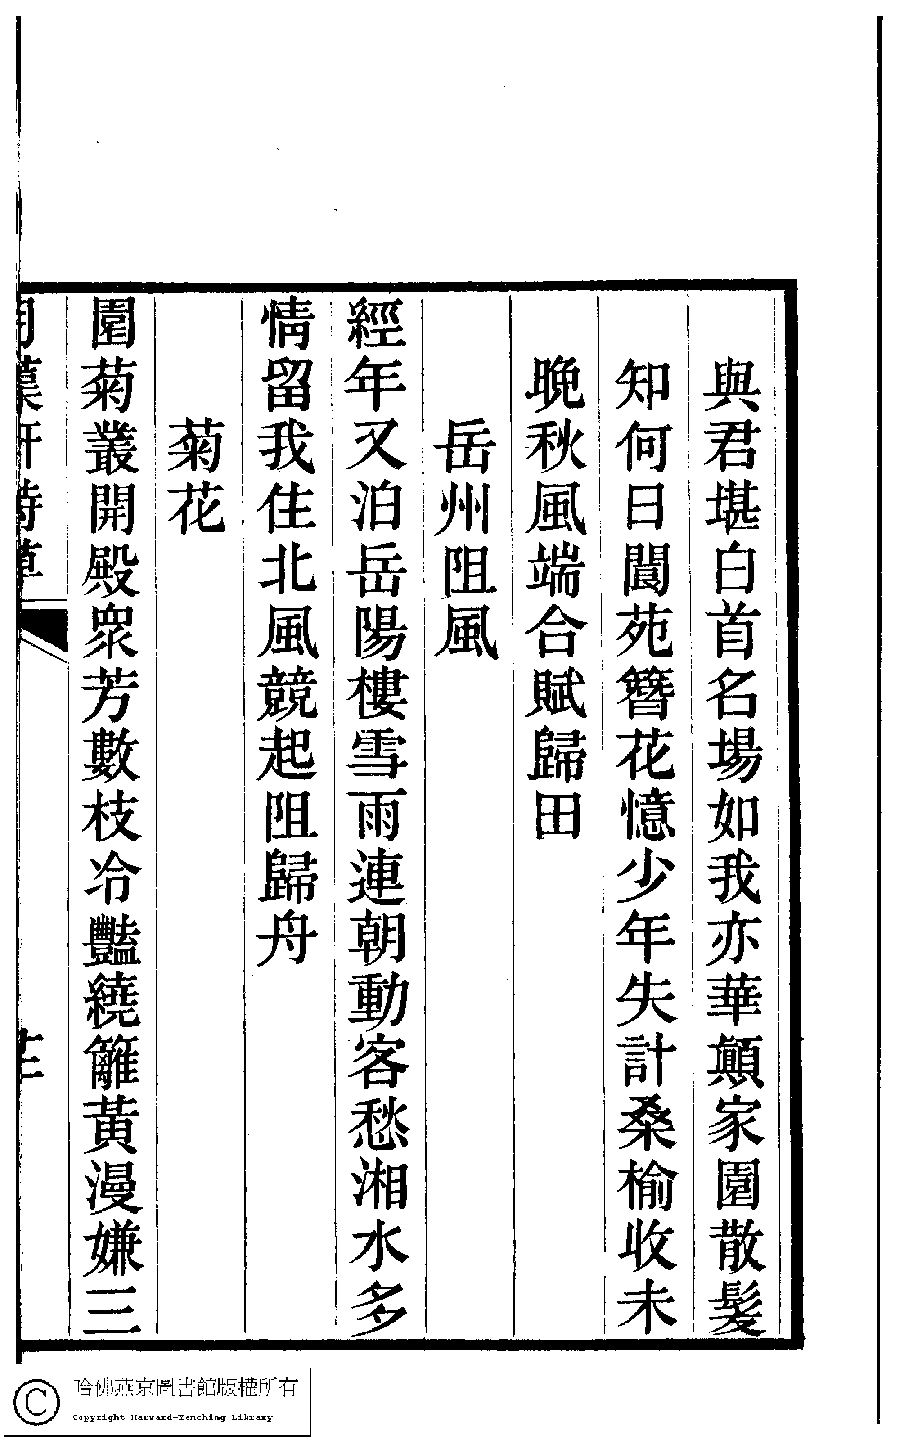 與君堪白首名場如我亦華顛家園散髮
知何日閬苑簪花憶少年失計桑榆收未
晚秋風端合賦歸田
岳州阻風
經年又泊岳陽樓雪雨連朝動客愁湘水多
情留我住北風競起阻歸舟
菊花
園菊叢開殿衆芳數枝冷豔繞籬黃漫嫌三
哈佛燕京圖書館版權所有
Copyright Harvard-Yenching Library